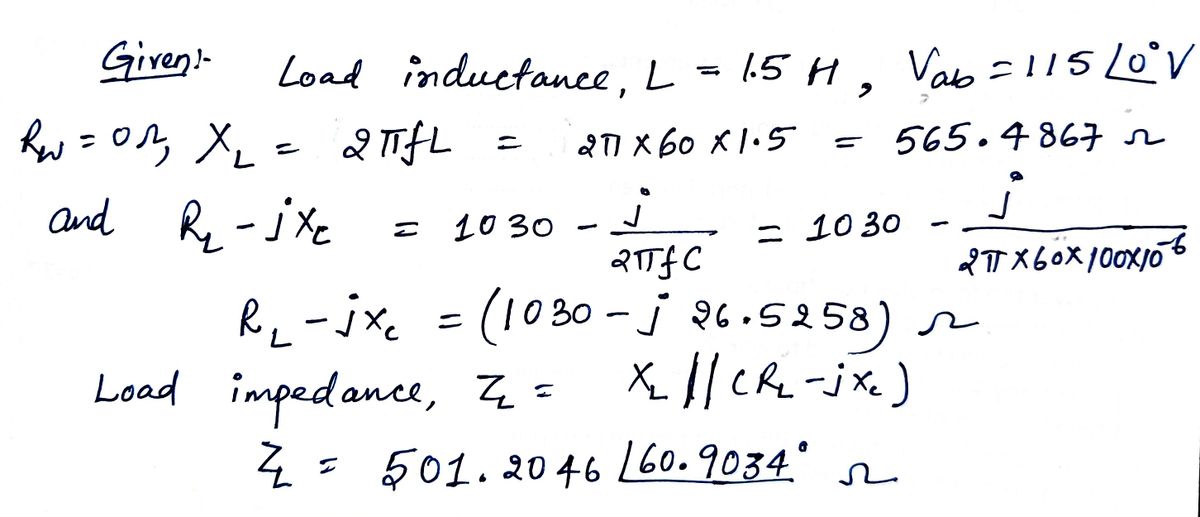 Given:- Load inductance, L = 1.5 H, Vab = 115 ∠0° V
Rw = 0 Ω, XL = 2πfL = 2π × 60 × 1.5 = 565.4867 Ω
and RL - jXc = 1030 - j/2πfC = 1030 - j/2π×60×100×10^-6
RL - jXc = (1030 - j 26.5258) Ω
Load impedance, ZL = XL || (RL - jXc)
ZL = 501.2046 ∠60.9034° Ω